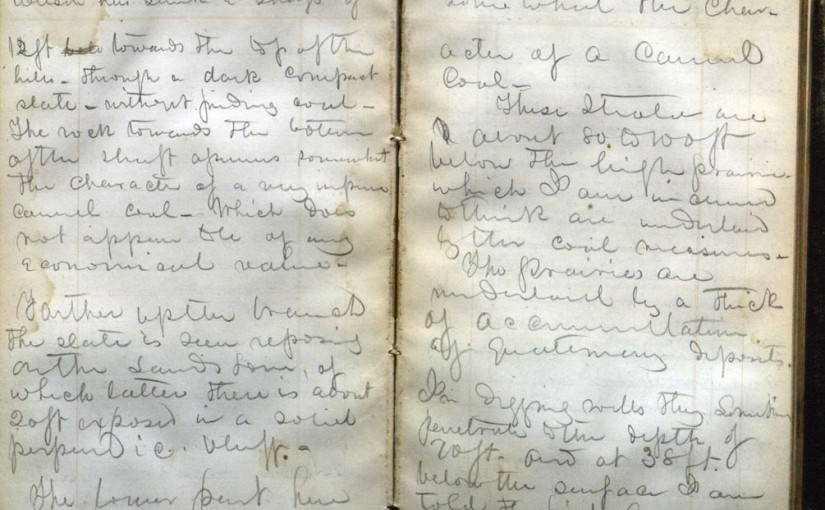 12ft towards the top of the
hill – through a dark compact
slate – without finding coal –
The rock towards the bottom
of the shaft assumes somewhat
the character of a very impure
cannel coal – Which does
not appear to be of any
economical value –
Farther up the branch
the slate is seen reposing
on the Sandstone, of
which latter there is about
20ft exposed in a solid
perpendic. bluff. –
The lower part here
some what the Char-
acter of a Cannel
Coal –
These Strata are
about 80 to 100ft
below the high prairie
which I am inclined
to think are underlaid
by the coal measures –
The prairies are
underlaid by a thick
accumulation
of quaternary deposits.
In digging wells they sometimes
penetrate to the depth of
70ft. and at 38ft.
below the surface I am
told